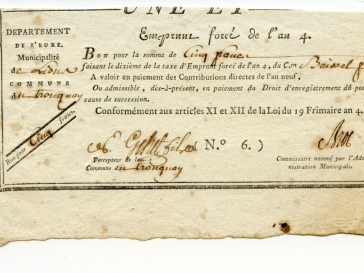 UNE ET
DEPARTEMENT
DE L'EURE.
Municipalité
COMMUNE
du tronquay
Emprunt forcé de l'an 4.
BON pour la somme de Cinq francs
faisant le dixième de la taxe d'Emprunt forcé de l'an 4, du C.en
A valoir en paiement des Contributions directes de l'an neuf.
Ou admissible, dès-à-présent, en paiement du Droit d'enregistrement dû pour
cause de succession.
Conformément aux articles XI et XII de la Loi du 19 Frimaire an 4.
Bon pour Cinq francs.
N.° 6. )
Percepteur de la
Commune du tronquay
Commissaire nommé par l'Admi-
nistration Municipale.